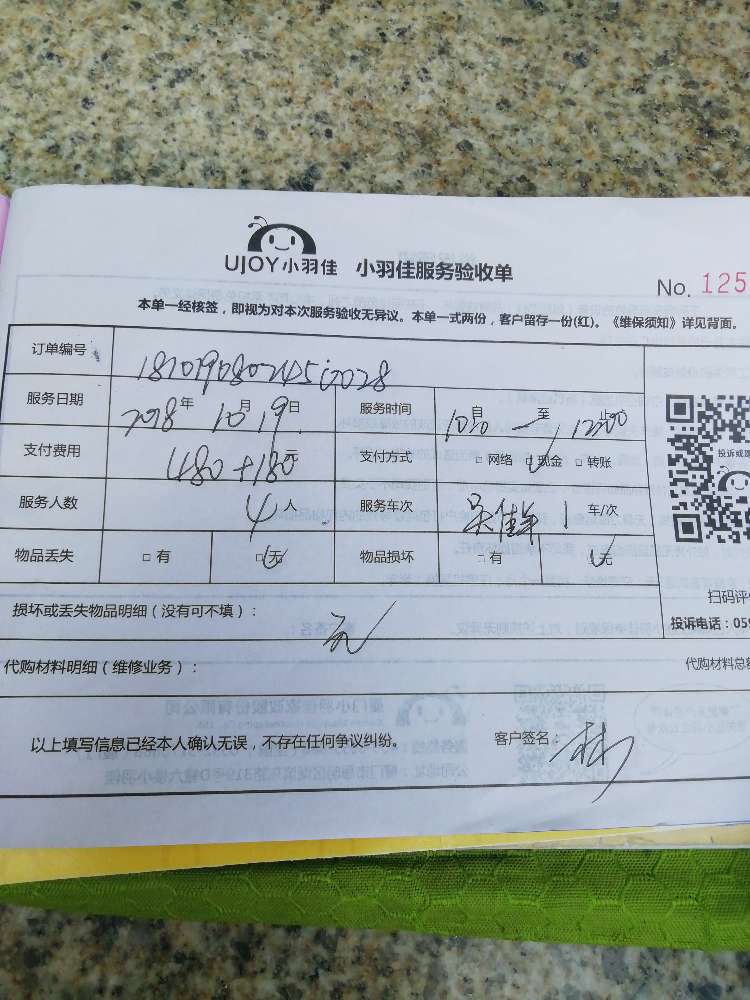 UJOY小羽佳 小羽佳服务验收单
No. 125
本单一经核签，即视为对本次服务验收无异议。本单一式两份，客户留存一份(红)。《维保须知》详见背面。
订单编号
服务日期 2018年 10月 19日 服务时间 自 至 止
支付费用 480+180元 支付方式 □网络 □现金 □转账
服务人数 4人 服务车次 车/次
物品丢失 □有 □无 物品损坏 □有 □无
投诉或
扫码评
损坏或丢失物品明细（没有可不填）： 无
投诉电话：059
代购材料明细（维修业务）： 代购材料总
以上填写信息已经本人确认无误，不存在任何争议纠纷。 客户签名：